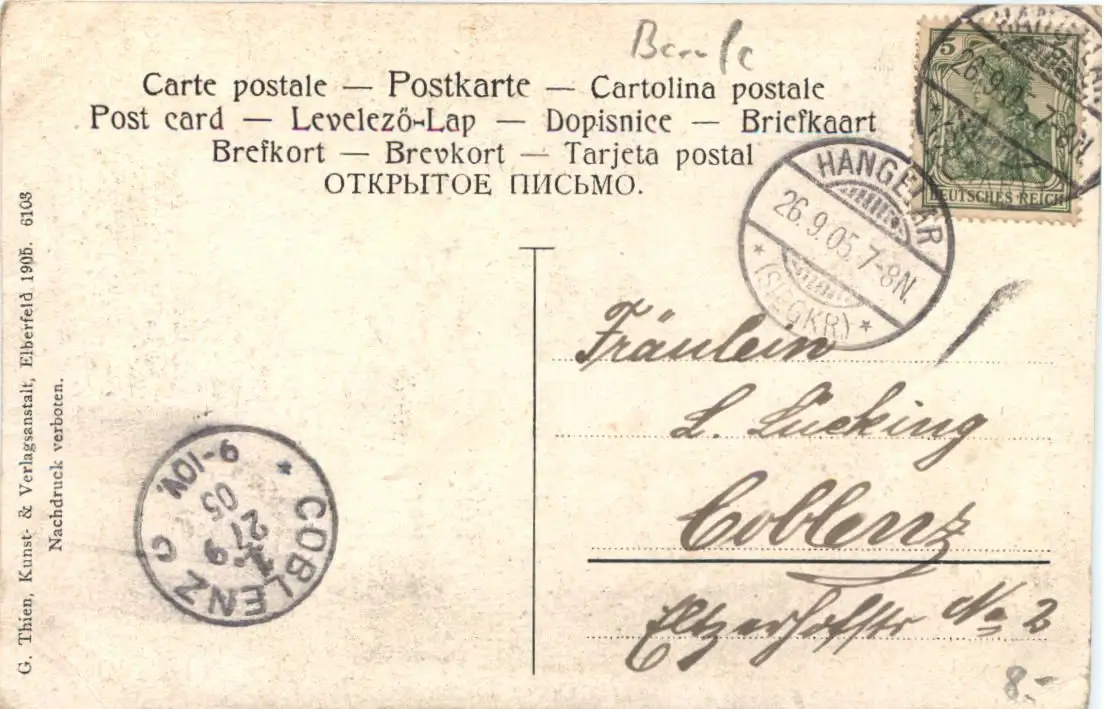 Berufe
Carte postale — Postkarte — Cartolina postale
Post card — Levelező-Lap — Dopisnice — Briefkaart
Brefkort — Brevkort — Tarjeta postal
ОТКРЫТОЕ ПИСЬМО.
5
DEUTSCHES REICH
HANGELAR
26.9.05.7-8N.
* (SIEGKR) *
HANGELAR
26.9.05.7-8N.
Fräulein
L. Lücking
Coblenz
Eltzerhofstr No 2
8.-
* COBLENZ C
27 9
05
9-10N.
G. Thien, Kunst- & Verlagsanstalt, Elberfeld 1905. 6103
Nachdruck verboten.